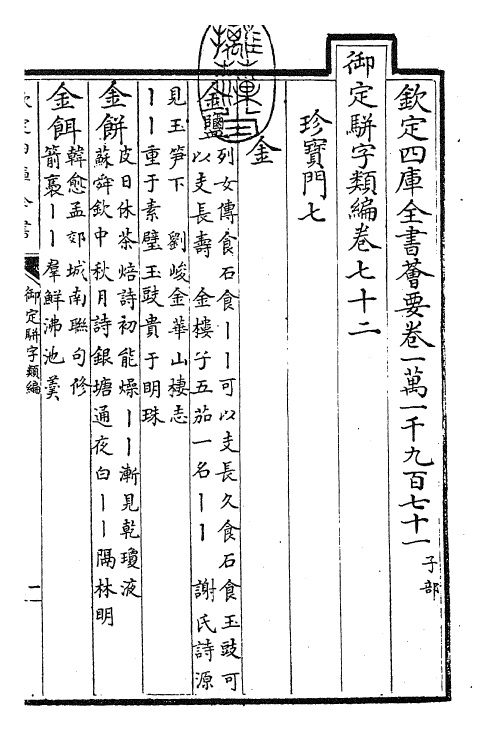 欽定四庫全書薈要卷一萬一千九百七十一 子部
御定駢字類編卷七十二
珍寶門七
金
金鹽 列女傳食石食丨丨可以支長久食石食玉豉可
以支長壽 金樓子五茄一名丨丨 謝氏詩源
見玉笋下 劉峻金華山棲志
丨丨重于素璧玉豉貴于明珠
金餅 皮日休茶焙詩初能燥丨丨漸見乾瓊液
蘇舜欽中秋月詩銀塘通夜白丨丨隔林明
金餌 韓愈孟郊城南聯句修
箭裹丨丨羣鮮沸池羹
欽定四庫全書
御定駢字類編
一